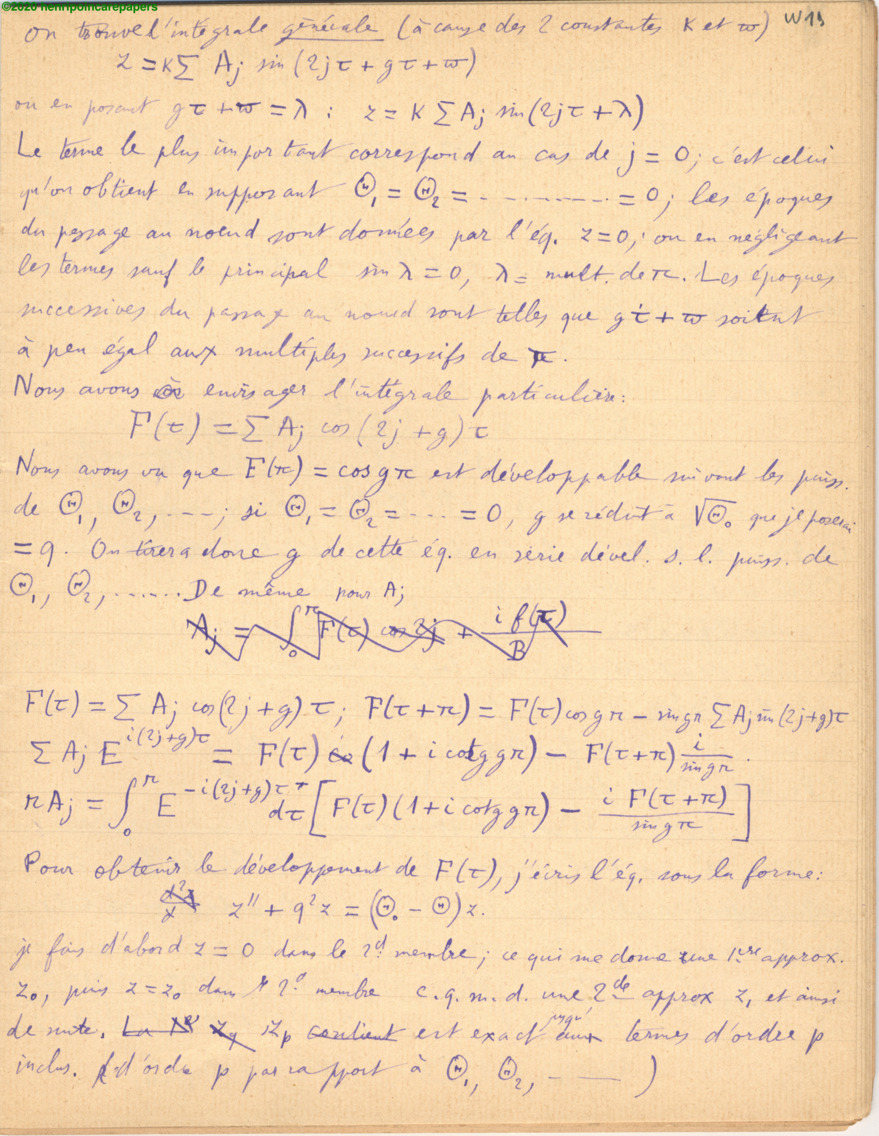 ©2020 henripoincarepapers
W 19
on trouve l'intégrale générale (à cause des 2 constantes K et ϖ)
z = K∑ Aj sin(2jτ + gτ + ϖ)
ou en posant gτ + ϖ = λ : z = K ∑ Aj sin(2jτ + λ)
Le terme le plus important correspond au cas de j = 0; c'est celui
qu'on obtient en supposant Θ₁ = Θ₂ = ---------- = 0; les époques
du passage au noeud sont données par l'éq. z=0, ou en négligeant
les termes sauf le principal sin λ = 0, λ = mult. de π. Les époques
successives du passage au noeud sont telles que gτ + ϖ soient
à peu égal aux multiples successifs de π.
Nous avons à envisager l'intégrale particulière:
F(τ) = ∑ Aj cos(2j + g)τ
Nous avons vu que F(π) = cos gπ est développable suivant les puiss.
de Θ₁, Θ₂, ---; si Θ₁ = Θ₂ = --- = 0, g se réduit à √Θ₀ que je poserai
= q. On tirera donc g de cette éq. en série dével. s. l. puiss. de
Θ₁, Θ₂, ...... De même pour Aj
Aj = ∫₀^π F(τ) cos 2j + i f(τ) / B
F(τ) = ∑ Aj cos(2j+g)τ; F(τ+π) = F(τ) cos gπ − sin gπ ∑ Aj sin(2j+g)τ
∑ Aj E^{i(2j+g)τ} = F(τ) (1 + i cotg gπ) − F(τ+π) i / sin gπ.
πAj = ∫₀^π E^{-i(2j+g)τ} dτ [F(τ)(1 + i cotg gπ) − i F(τ+π) / sin gπ]
Pour obtenir le développement de F(τ), j'écris l'éq. sous la forme:
z'' + q²z = (Θ₀ − Θ)z.
je fais d'abord z = 0 dans le 2d membre; ce qui me donne une 1ère approx.
z₀, puis z = z₀ dans le 2d membre c. q. m. d. une 2de approx z₁ et ainsi
de suite. La zp contient est exact jusqu' aux termes d'ordre p
inclus. (d'ordre p par rapport à Θ₁, Θ₂, --- )